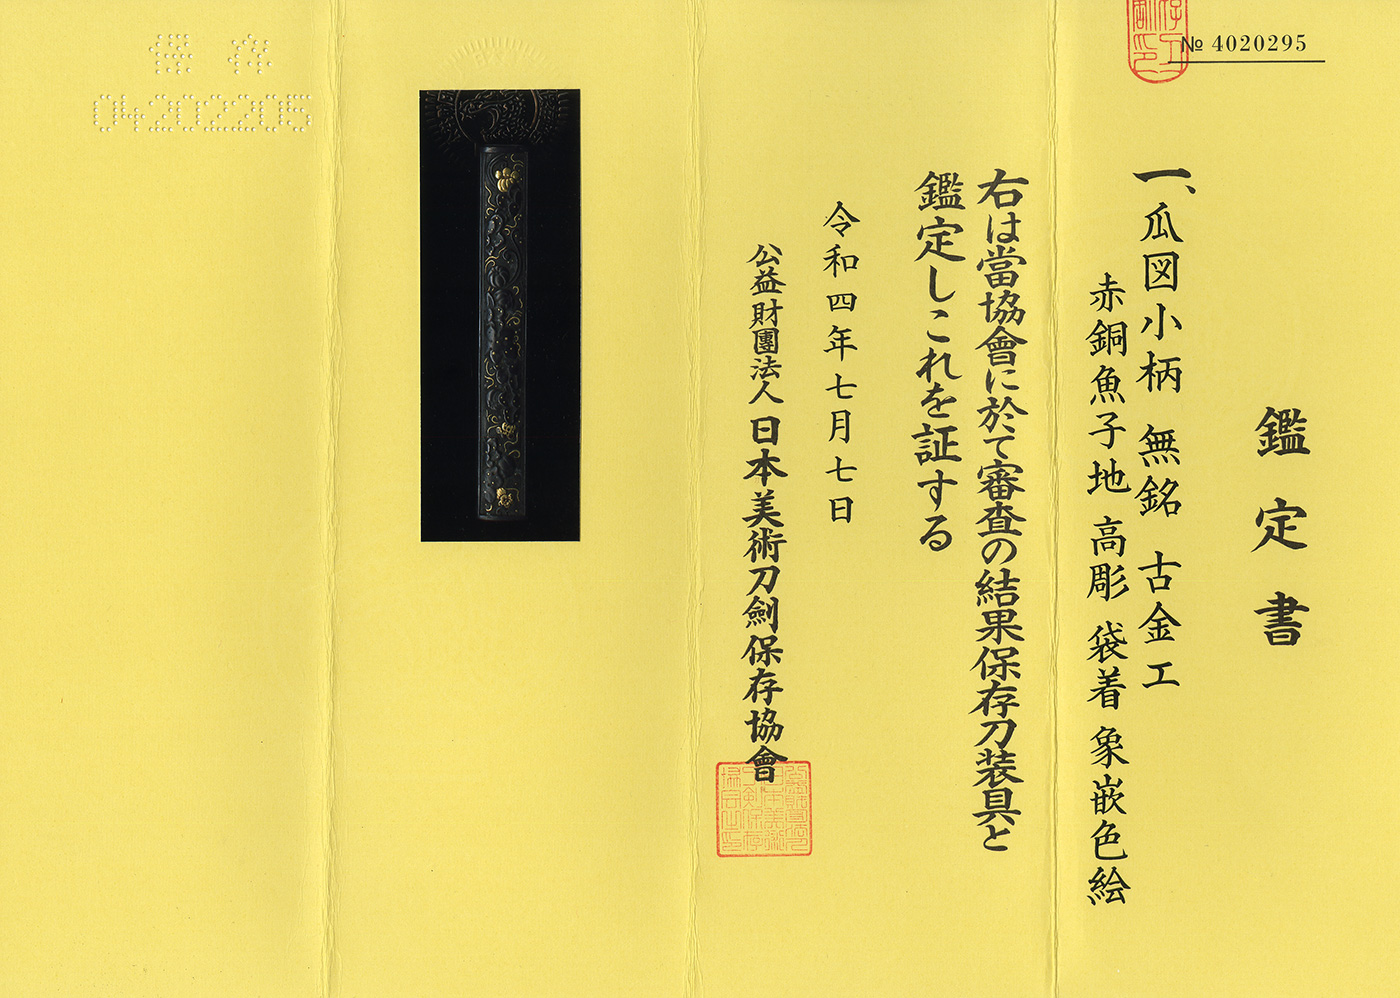 № 4020295
鑑定書
一、瓜図小柄 無銘 古金工
赤銅魚子地 高彫 袋着 象嵌色絵
右は當協會に於て審査の結果保存刀装具と
鑑定しこれを証する
令和四年七月七日
公益財團法人 日本美術刀劍保存協會
保存
04202205